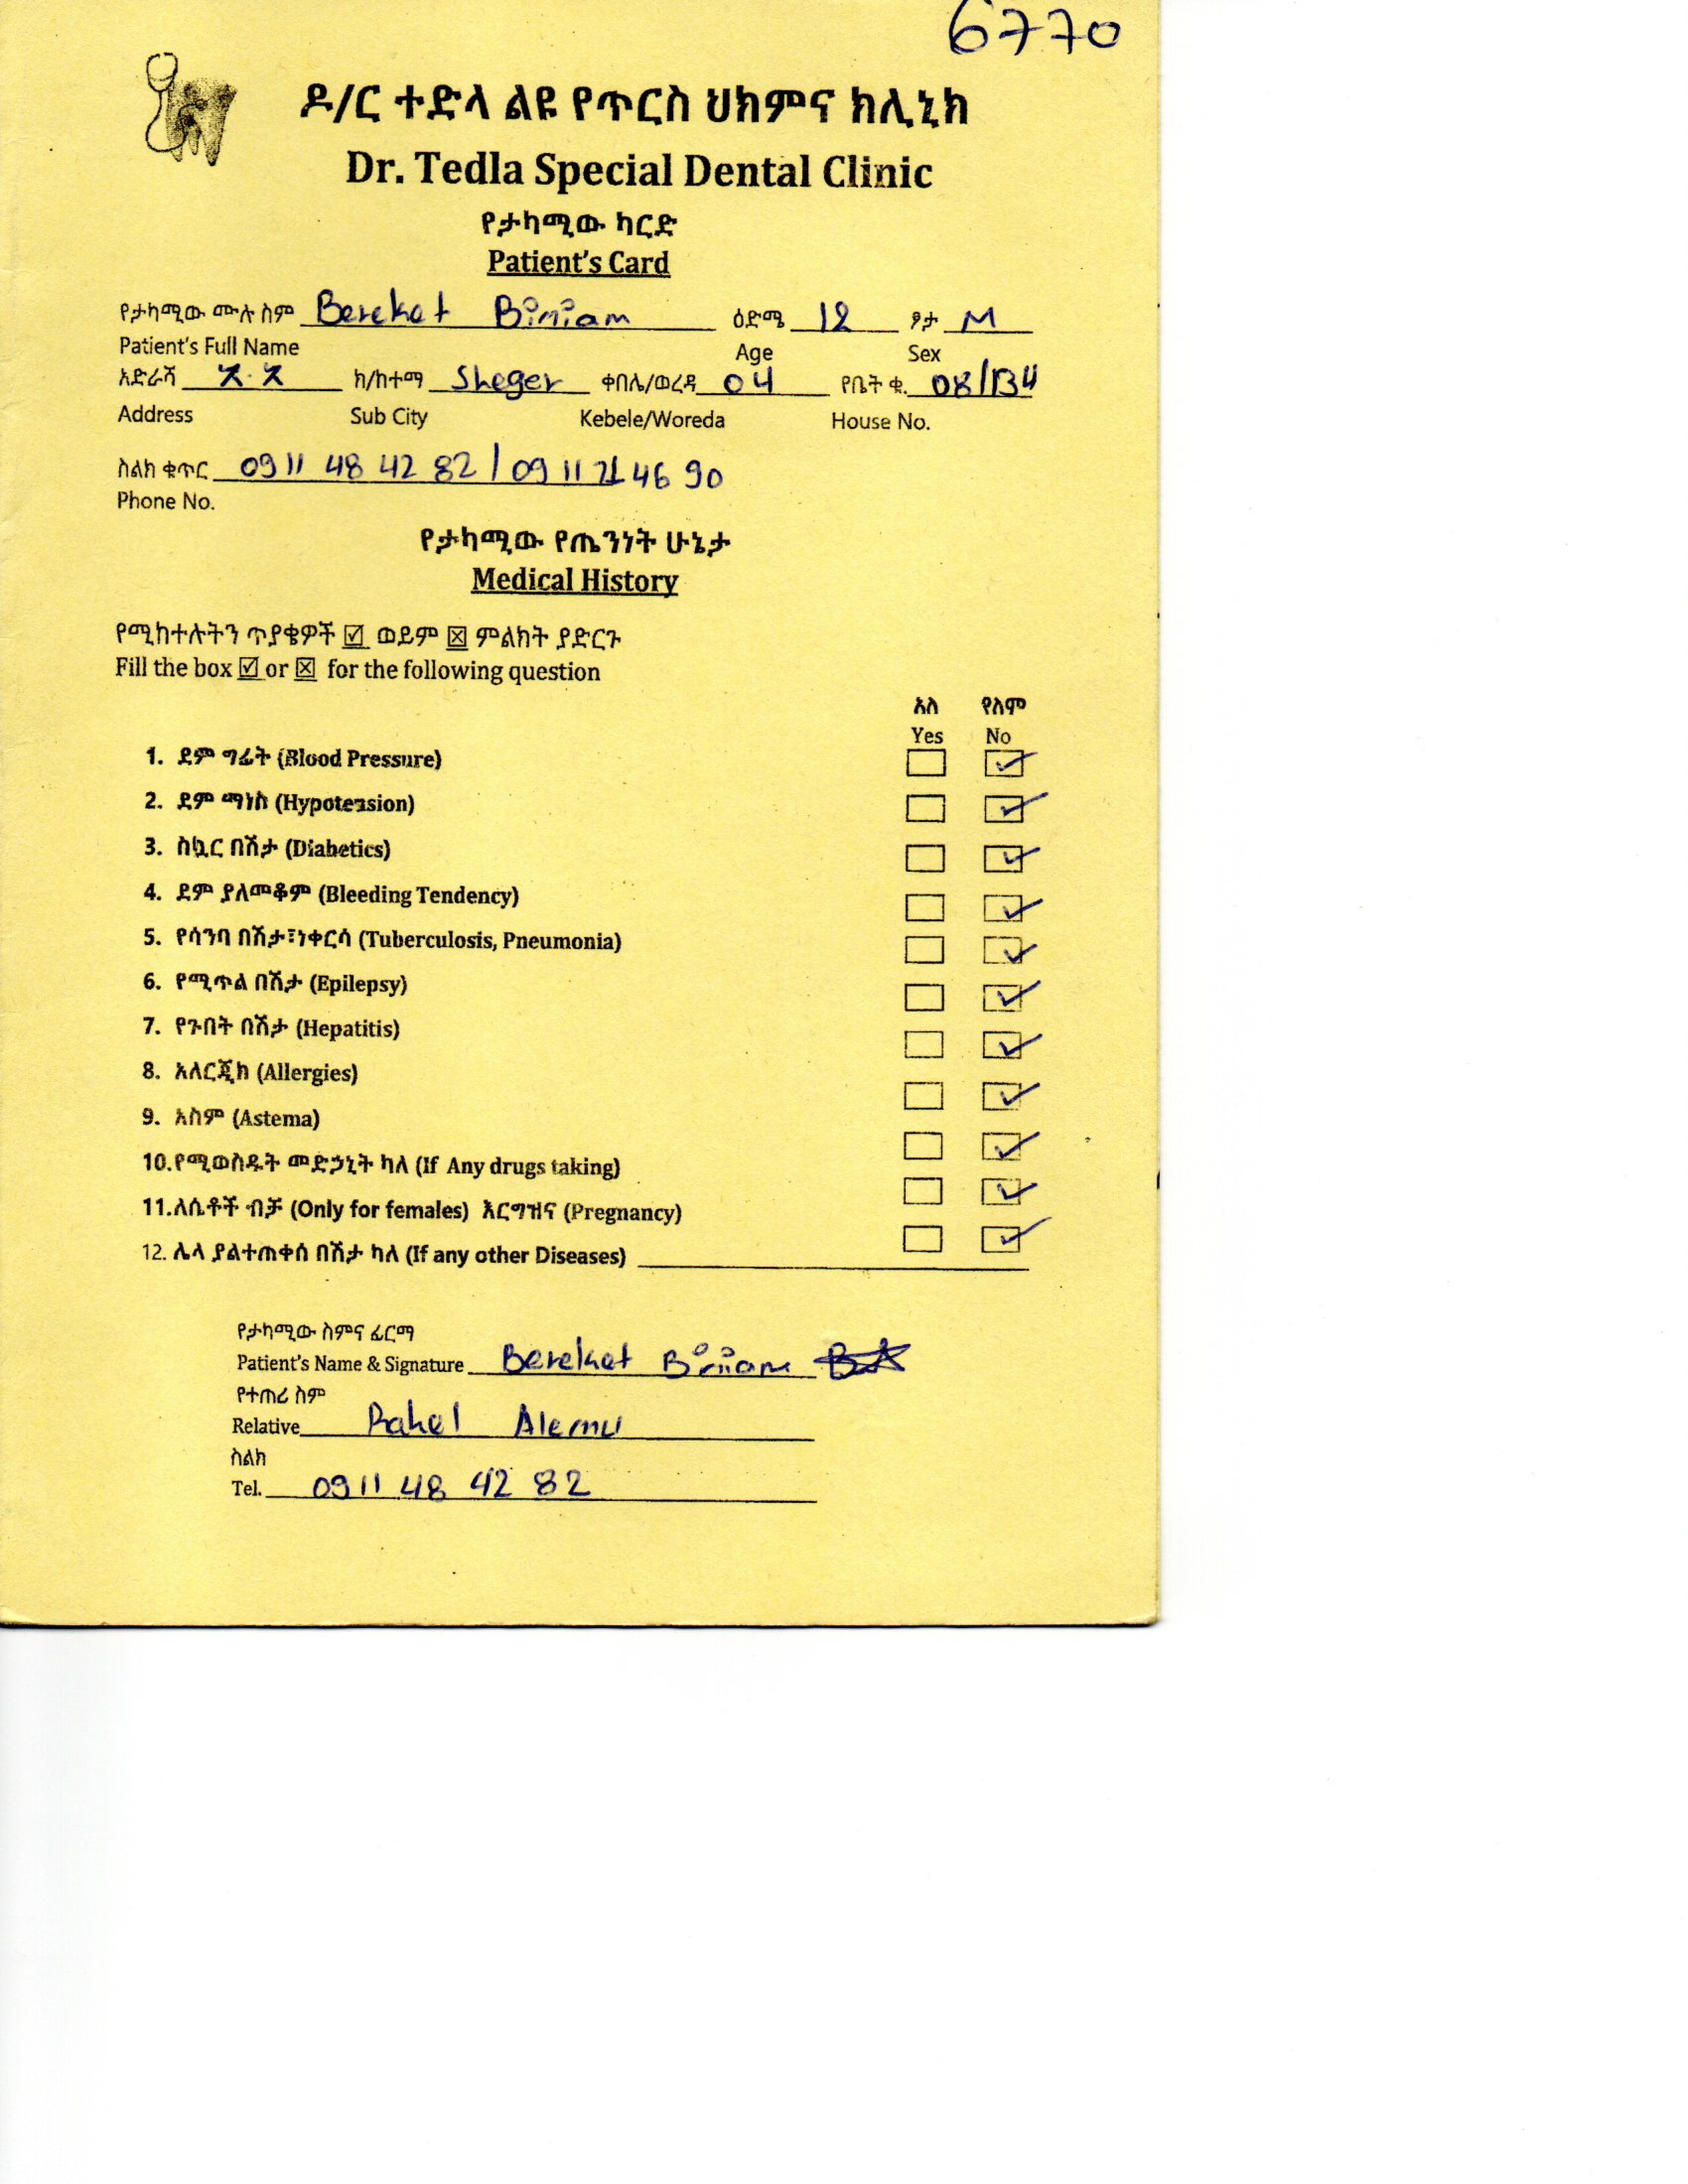 6770
ዶ/ር ተድላ ልዩ የጥርስ ህክምና ክሊኒክ
Dr. Tedla Special Dental Clinic
የታካሚው ካርድ
Patient's Card
የታካሚው ሙሉ ስም Bereket Biniam ዕድሜ 12 ፆታ M
Patient's Full Name Age Sex
አድራሻ ክ/ከተማ Sheger ቀበሌ/ወረዳ 04 የቤት ቁ.
Address Sub City Kebele/Woreda House No.
ስልክ ቁጥር 0911 48 42 82 / 09 11 46 90
Phone No.
የታካሚው የጤንነት ሁኔታ
Medical History
የሚከተሉትን ጥያቄዎች ☑ ወይም ☒ ምልክት ያድርጉ
Fill the box ☑ or ☒ for the following question
አለ የለም
Yes No
1. ደም ግፊት (Blood Pressure)
2. ደም ማነስ (Hypotension)
3. ስኳር በሽታ (Diabetics)
4. ደም ያለመቆም (Bleeding Tendency)
5. የሳንባ በሽታ፣ነቀርሳ (Tuberculosis, Pneumonia)
6. የሚጥል በሽታ (Epilepsy)
7. የጉበት በሽታ (Hepatitis)
8. አለርጂክ (Allergies)
9. አስም (Astema)
10.የሚወስዱት መድኃኒት ካለ (If Any drugs taking)
11.ለሴቶች ብቻ (Only for females) እርግዝና (Pregnancy)
12. ሌላ ያልተጠቀሰ በሽታ ካለ (If any other Diseases)
የታካሚው ስምና ፊርማ
Patient's Name & Signature Bereket Biniam
የተጠሪ ስም
Relative Rahel Alemu
ስልክ
Tel. 0911 48 42 82